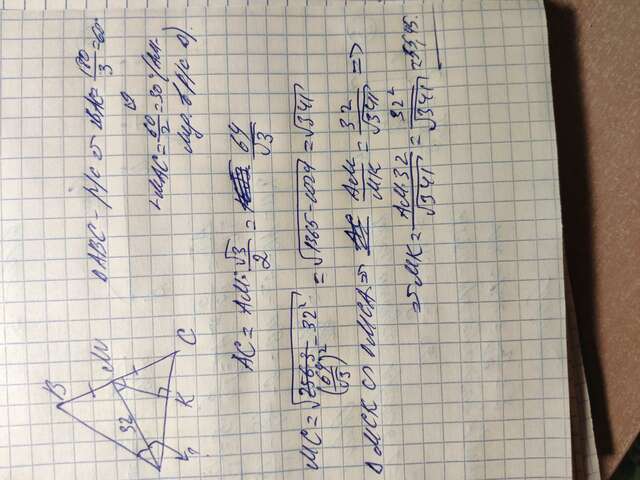 B
M
32
C
K
?
△ABC - р/с => ∠BAC = 180/3 = 60°
∠MAC = 60/2 = 30° (AM -
в р/с △)
AC = AM : √3/2 = 64/√3
MC = √((64/√3)² - 32²) = √(1365 - 1024) = √341
△MCK ∽ △MCA => AM/MK = 32/√341 =>
=> MK = AM · 32/√341 = 32²/√341 =